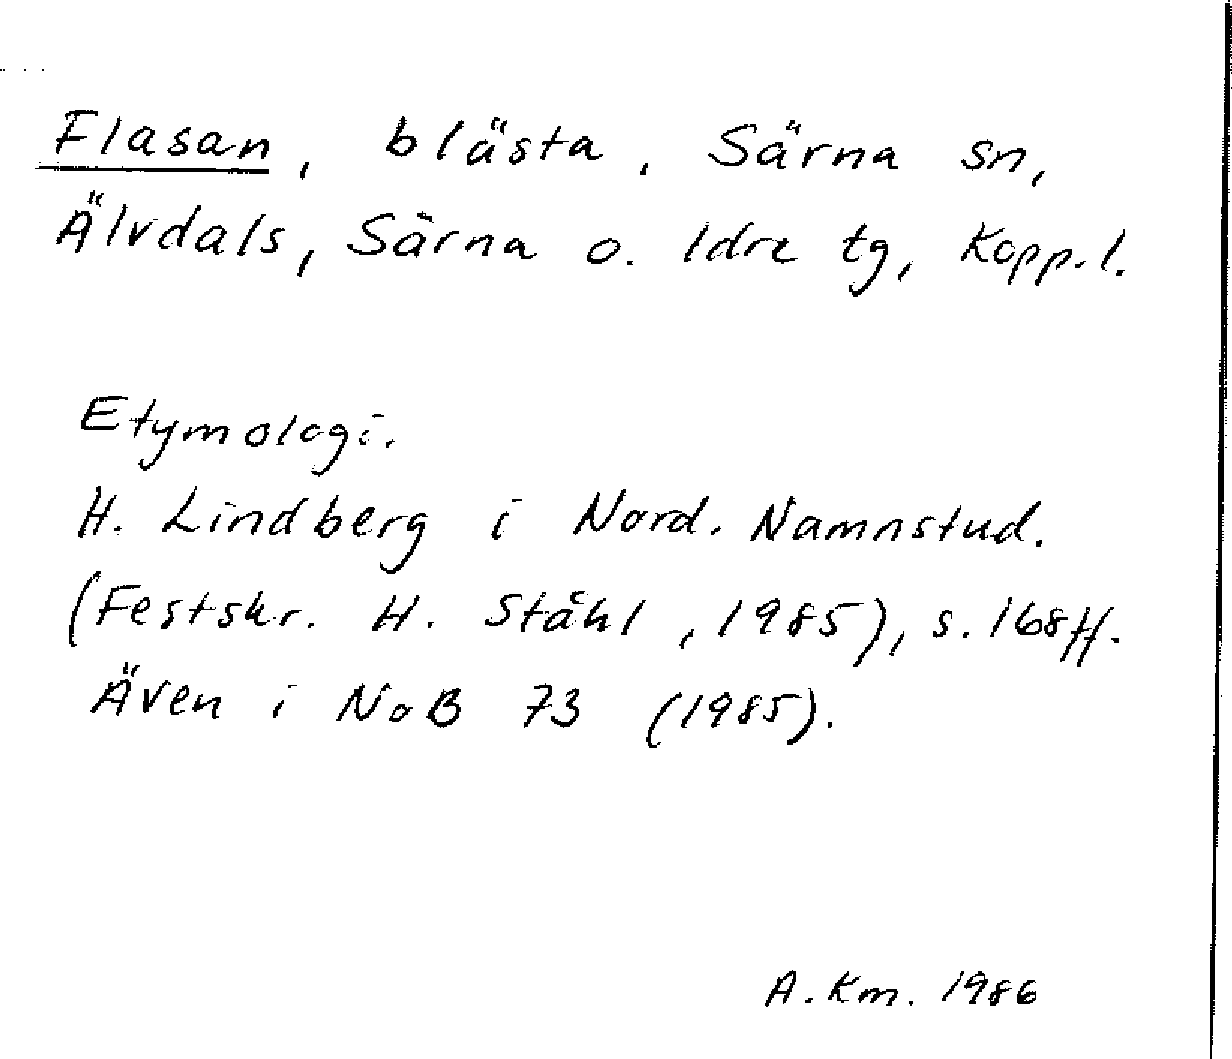 Flasan, blästa, Särna sn,
Älvdals, Särna o. Idre tg, Kopp.l.
Etymologi.
H. Lindberg i Nord. Namnstud.
(Festskr. H. Ståhl, 1985), s. 168ff.
Även i NoB 73 (1985).
A. Km. 1986